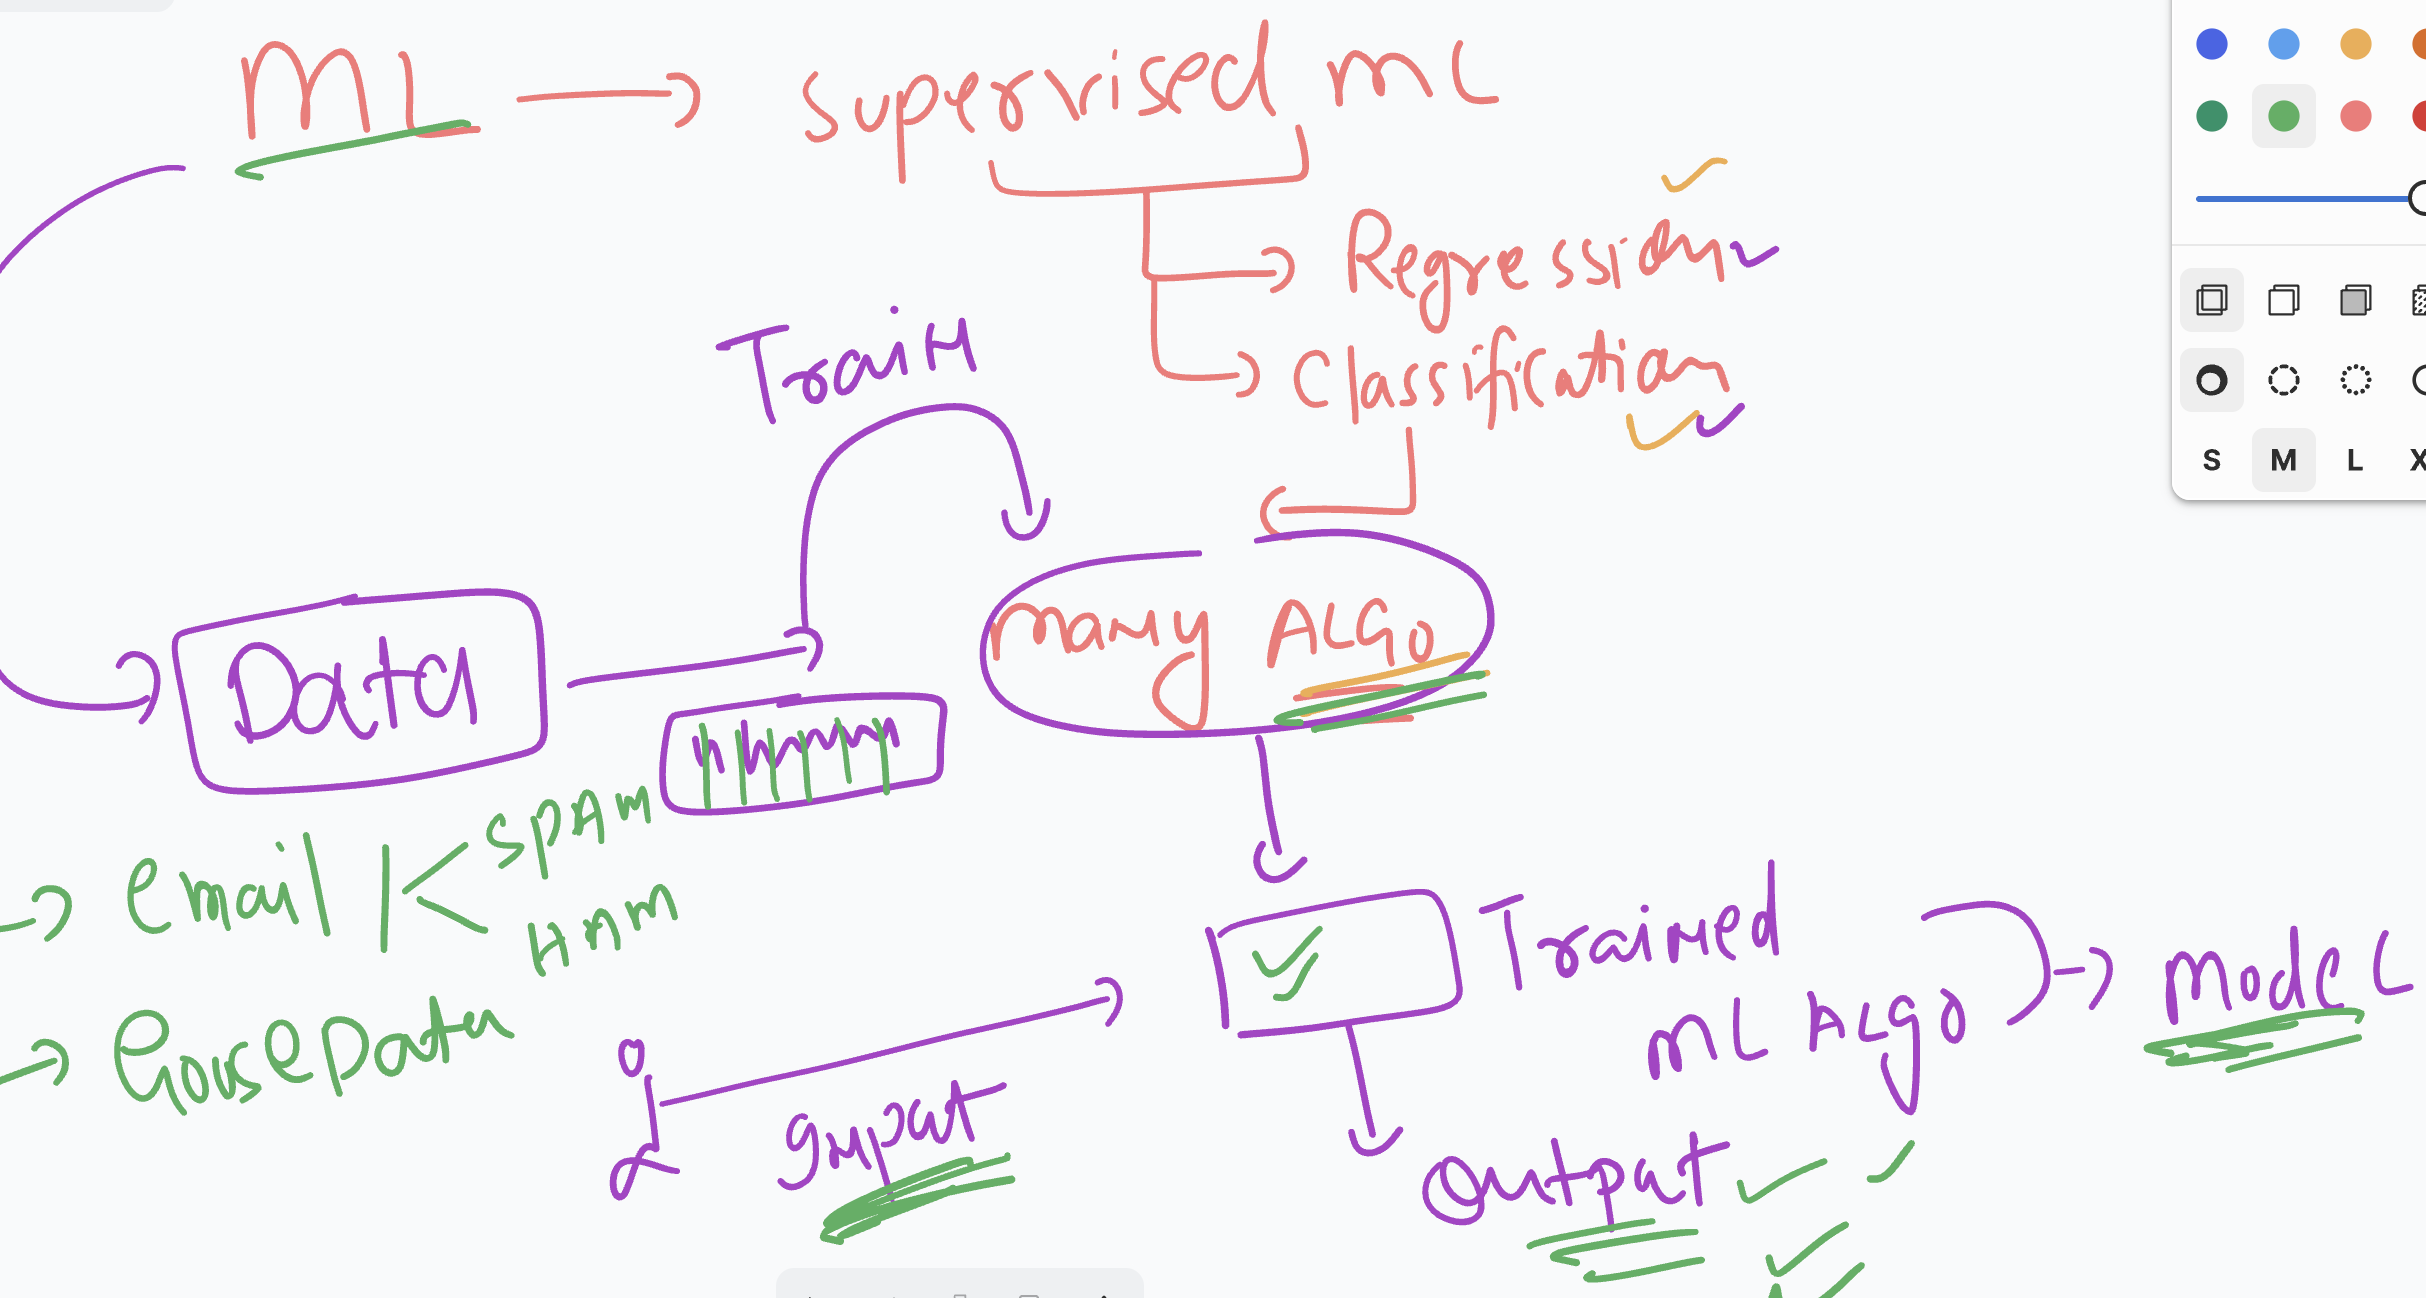 ML → Supervised ML
Regression
Classification
Train
Many ALGO
Data
email
SPAM
Ham
HousePData
Input
Trained
ML ALgo
Model
Output
S M L X